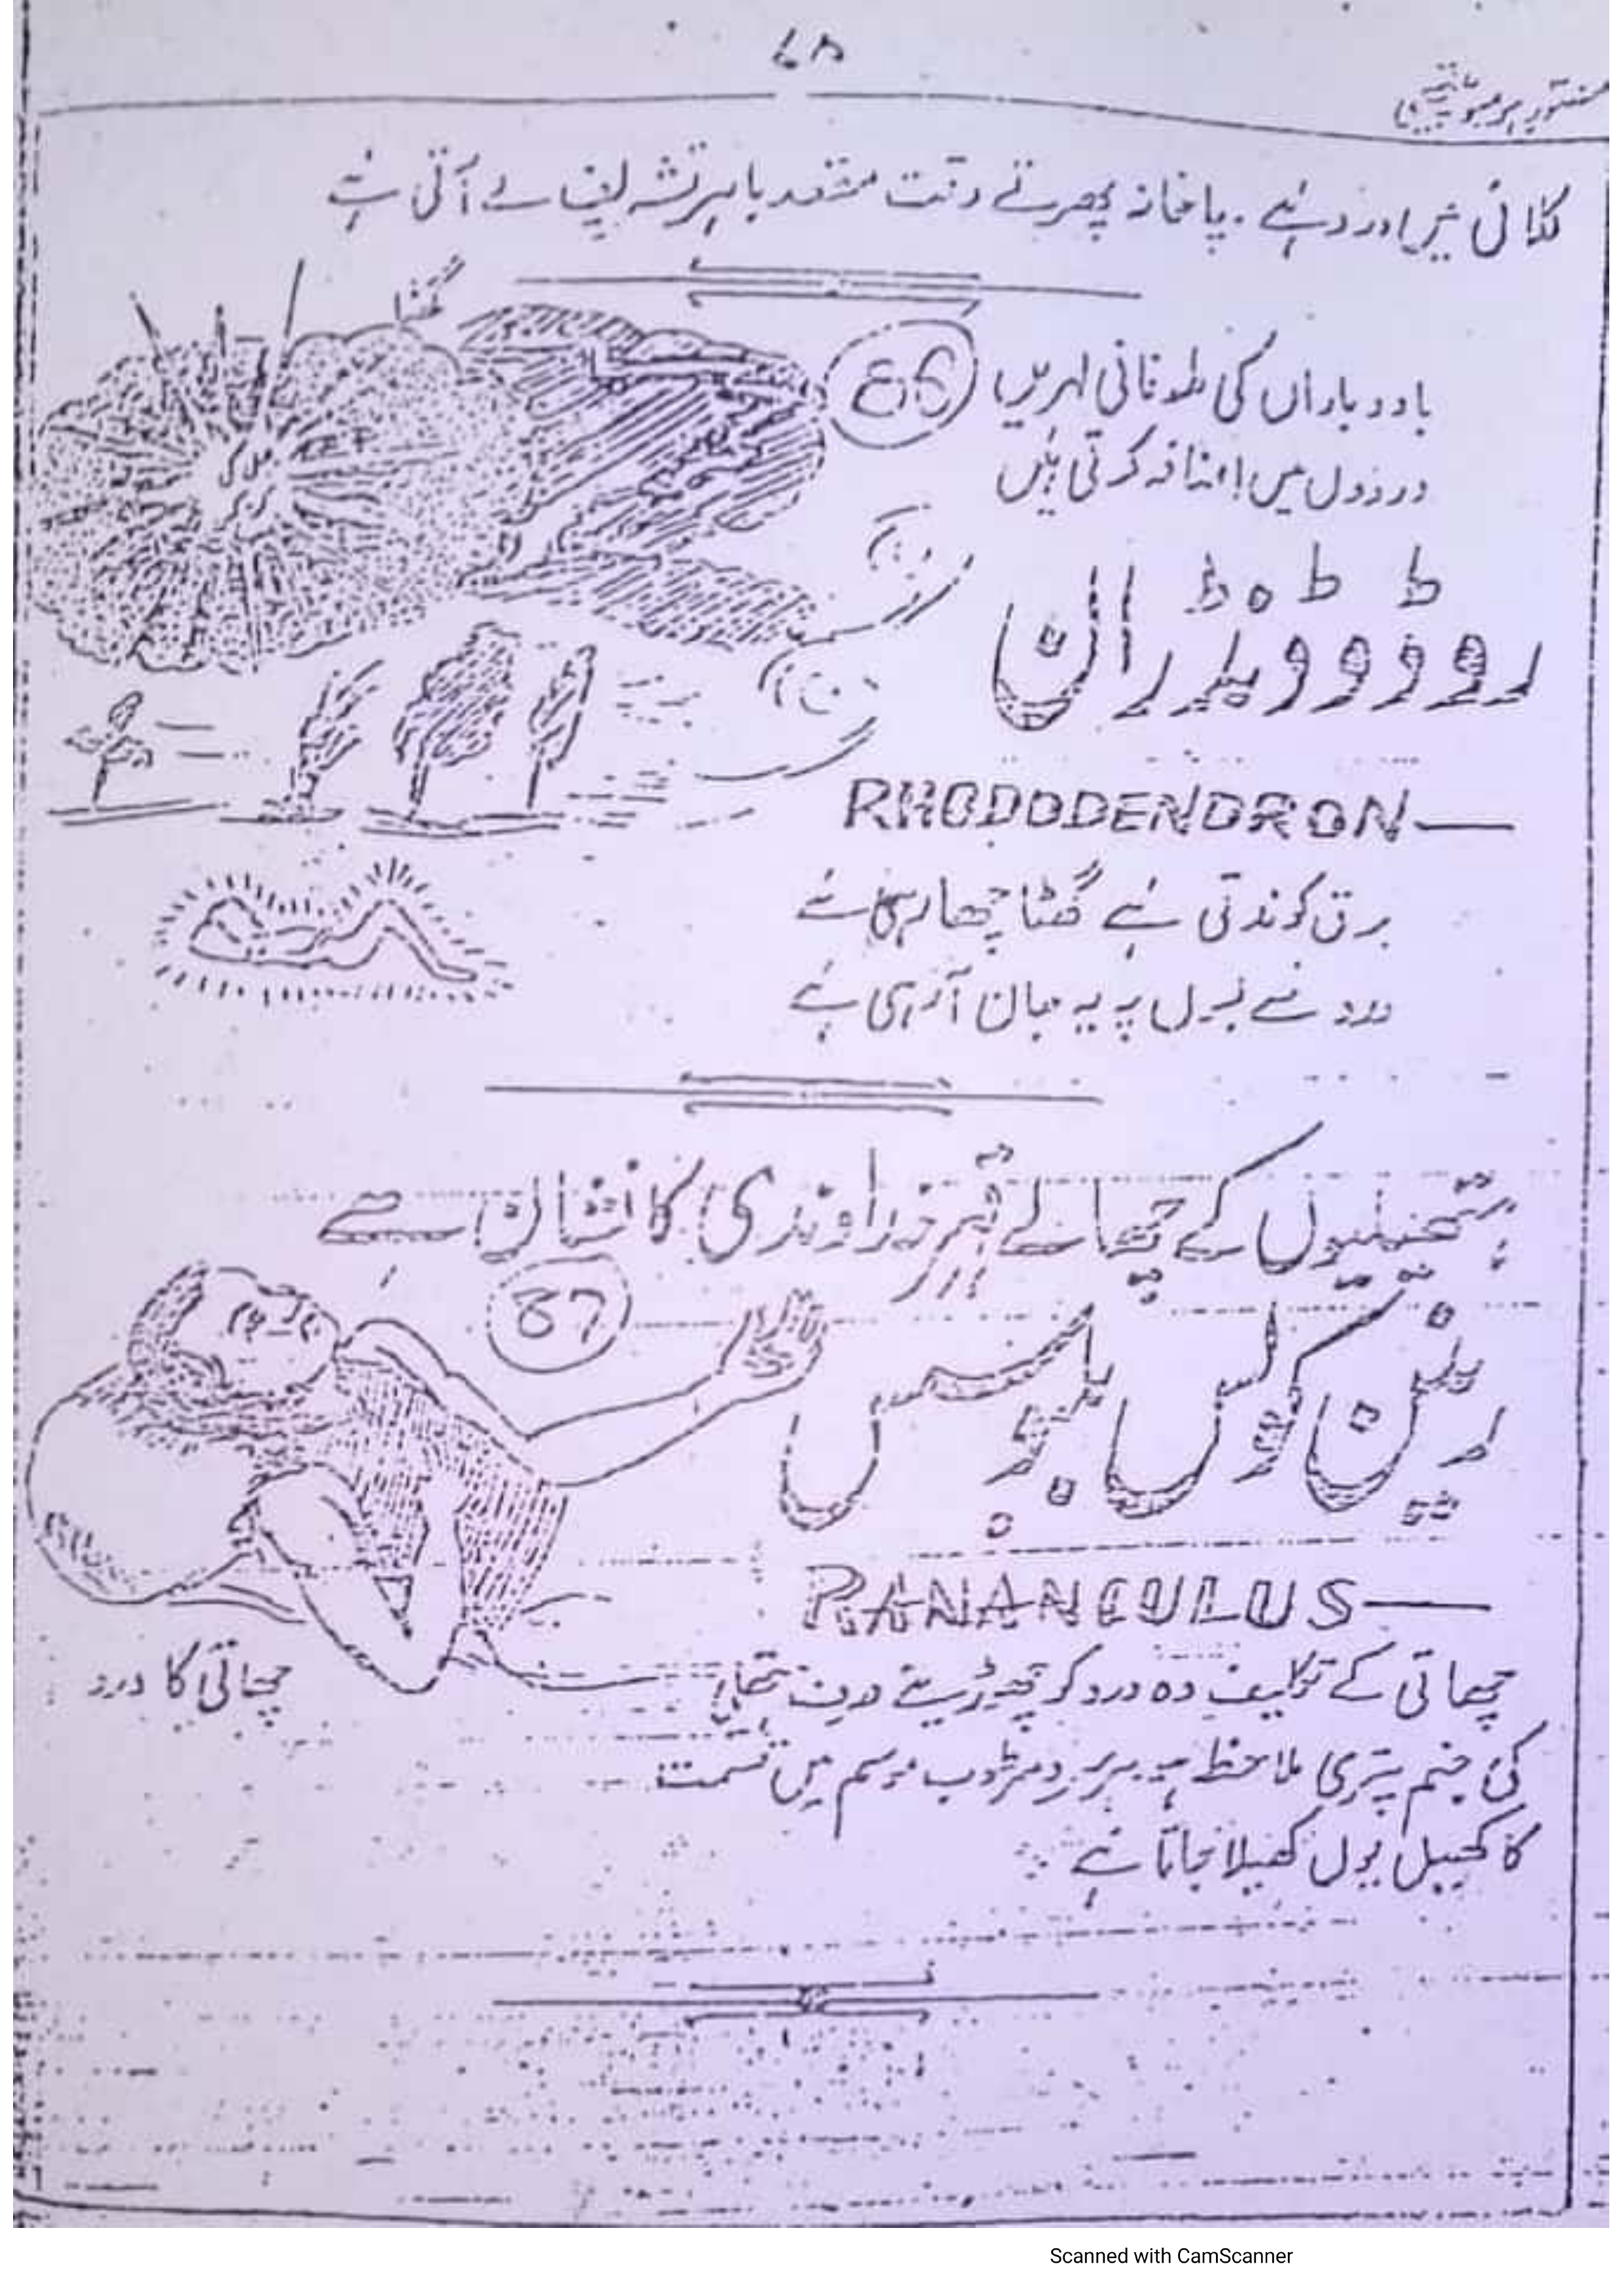 ۷۸
کلائی میں درد ہے. پاخانہ پھرتے وقت مقعد باہر تشریف لے آتی ہے
گھٹا
86
باد و باراں کی طوفانی لہریں
دردوں میں اضافہ کرتی ہیں
کڑک
روڈوڈینڈران
RHODODENDRON
برق کوندتی ہے گھٹا چھا رہی ہے
درد سے بدل پہ یہ جان آ رہی ہے
ہتھیلیوں کے چھالے قہر خداوندی کا نشان ہے
87
رینن کولس بلبوسس
RANANCULUS
چھاتی کے تکلیف دہ درد کو چھوڑیئے
چھاتی کا درد
کی جنم پتری ملاحظہ ہو سرد و مرطوب موسم میں قسمت
کا کھیل یوں کھیلا جاتا ہے
Scanned with CamScanner